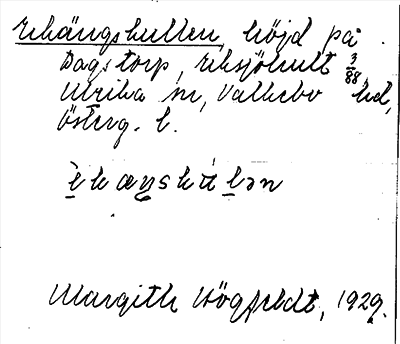 Ekängskullen, höjd på
Dagstorp, Eksjöhult 3/88,
Ulrika sn, Valkebo hd,
Österg. l.
è̱kæŋskù̱lən
Margith Högfeldt, 1929.